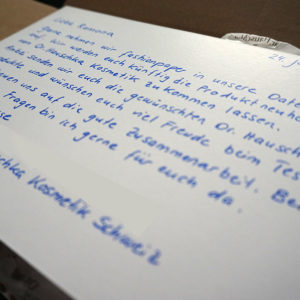 Liebe Ramona
24. J
Gerne nehmen wir fashionpaper in unsere Date
auf. Wir werden euch künftig die Produktneuhe
von Dr. Hauschka Kosmetik zukommen lassen.
senden wir euch die gewünschten Dr. Hausch
und wünschen euch viel Freude beim Tes
uns auf die gute Zusammenarbeit. Bei
Fragen bin ich gerne für euch da.
se
schka Kosmetik Schweiz